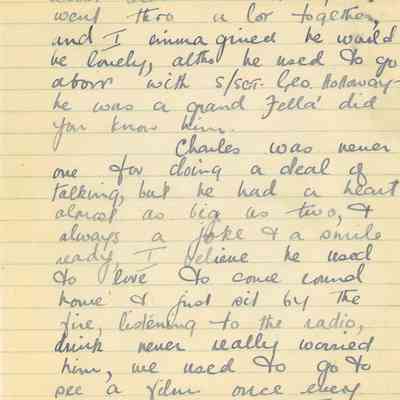 went thro a lot together,
and I immagined he would
be lonely, altho he used to go
abour with S/SGT. Geo. Holloway-
he was a grand Fella' did
you know him.
Charles was never
one for doing a deal of
talking, but he had a heart
almost as big as two, &
always a joke & a smile
ready, I believe he used
to love to come round
home & just sit by the
fire, listening to the radio,
drink never really worried
him, we used to go to
see a film once every